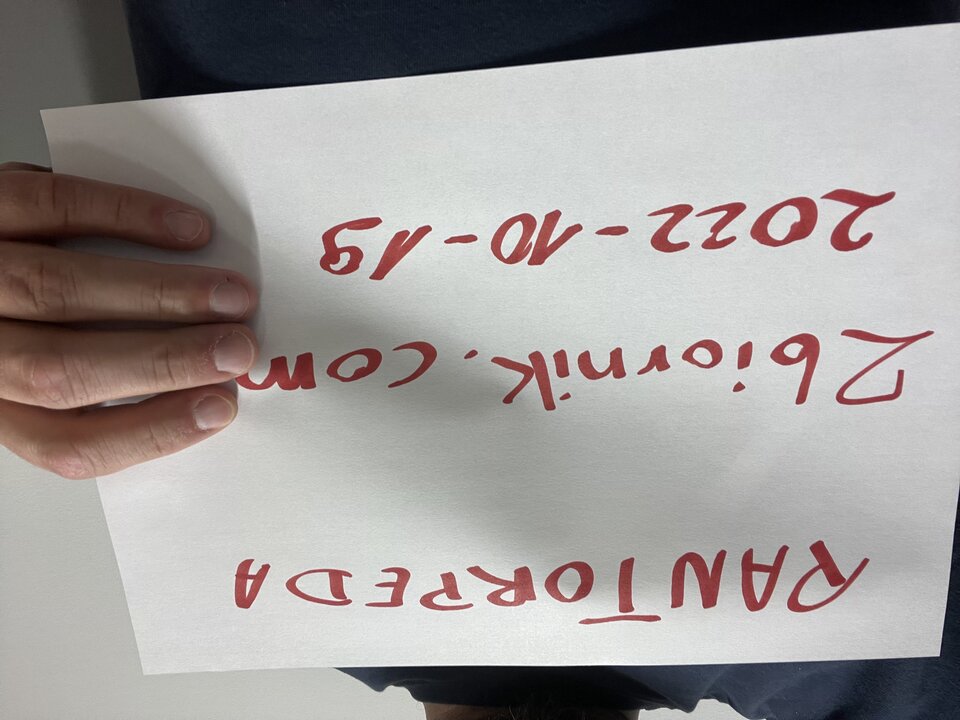 PANTORPEDA
Zbiornik.com
2022-10-19